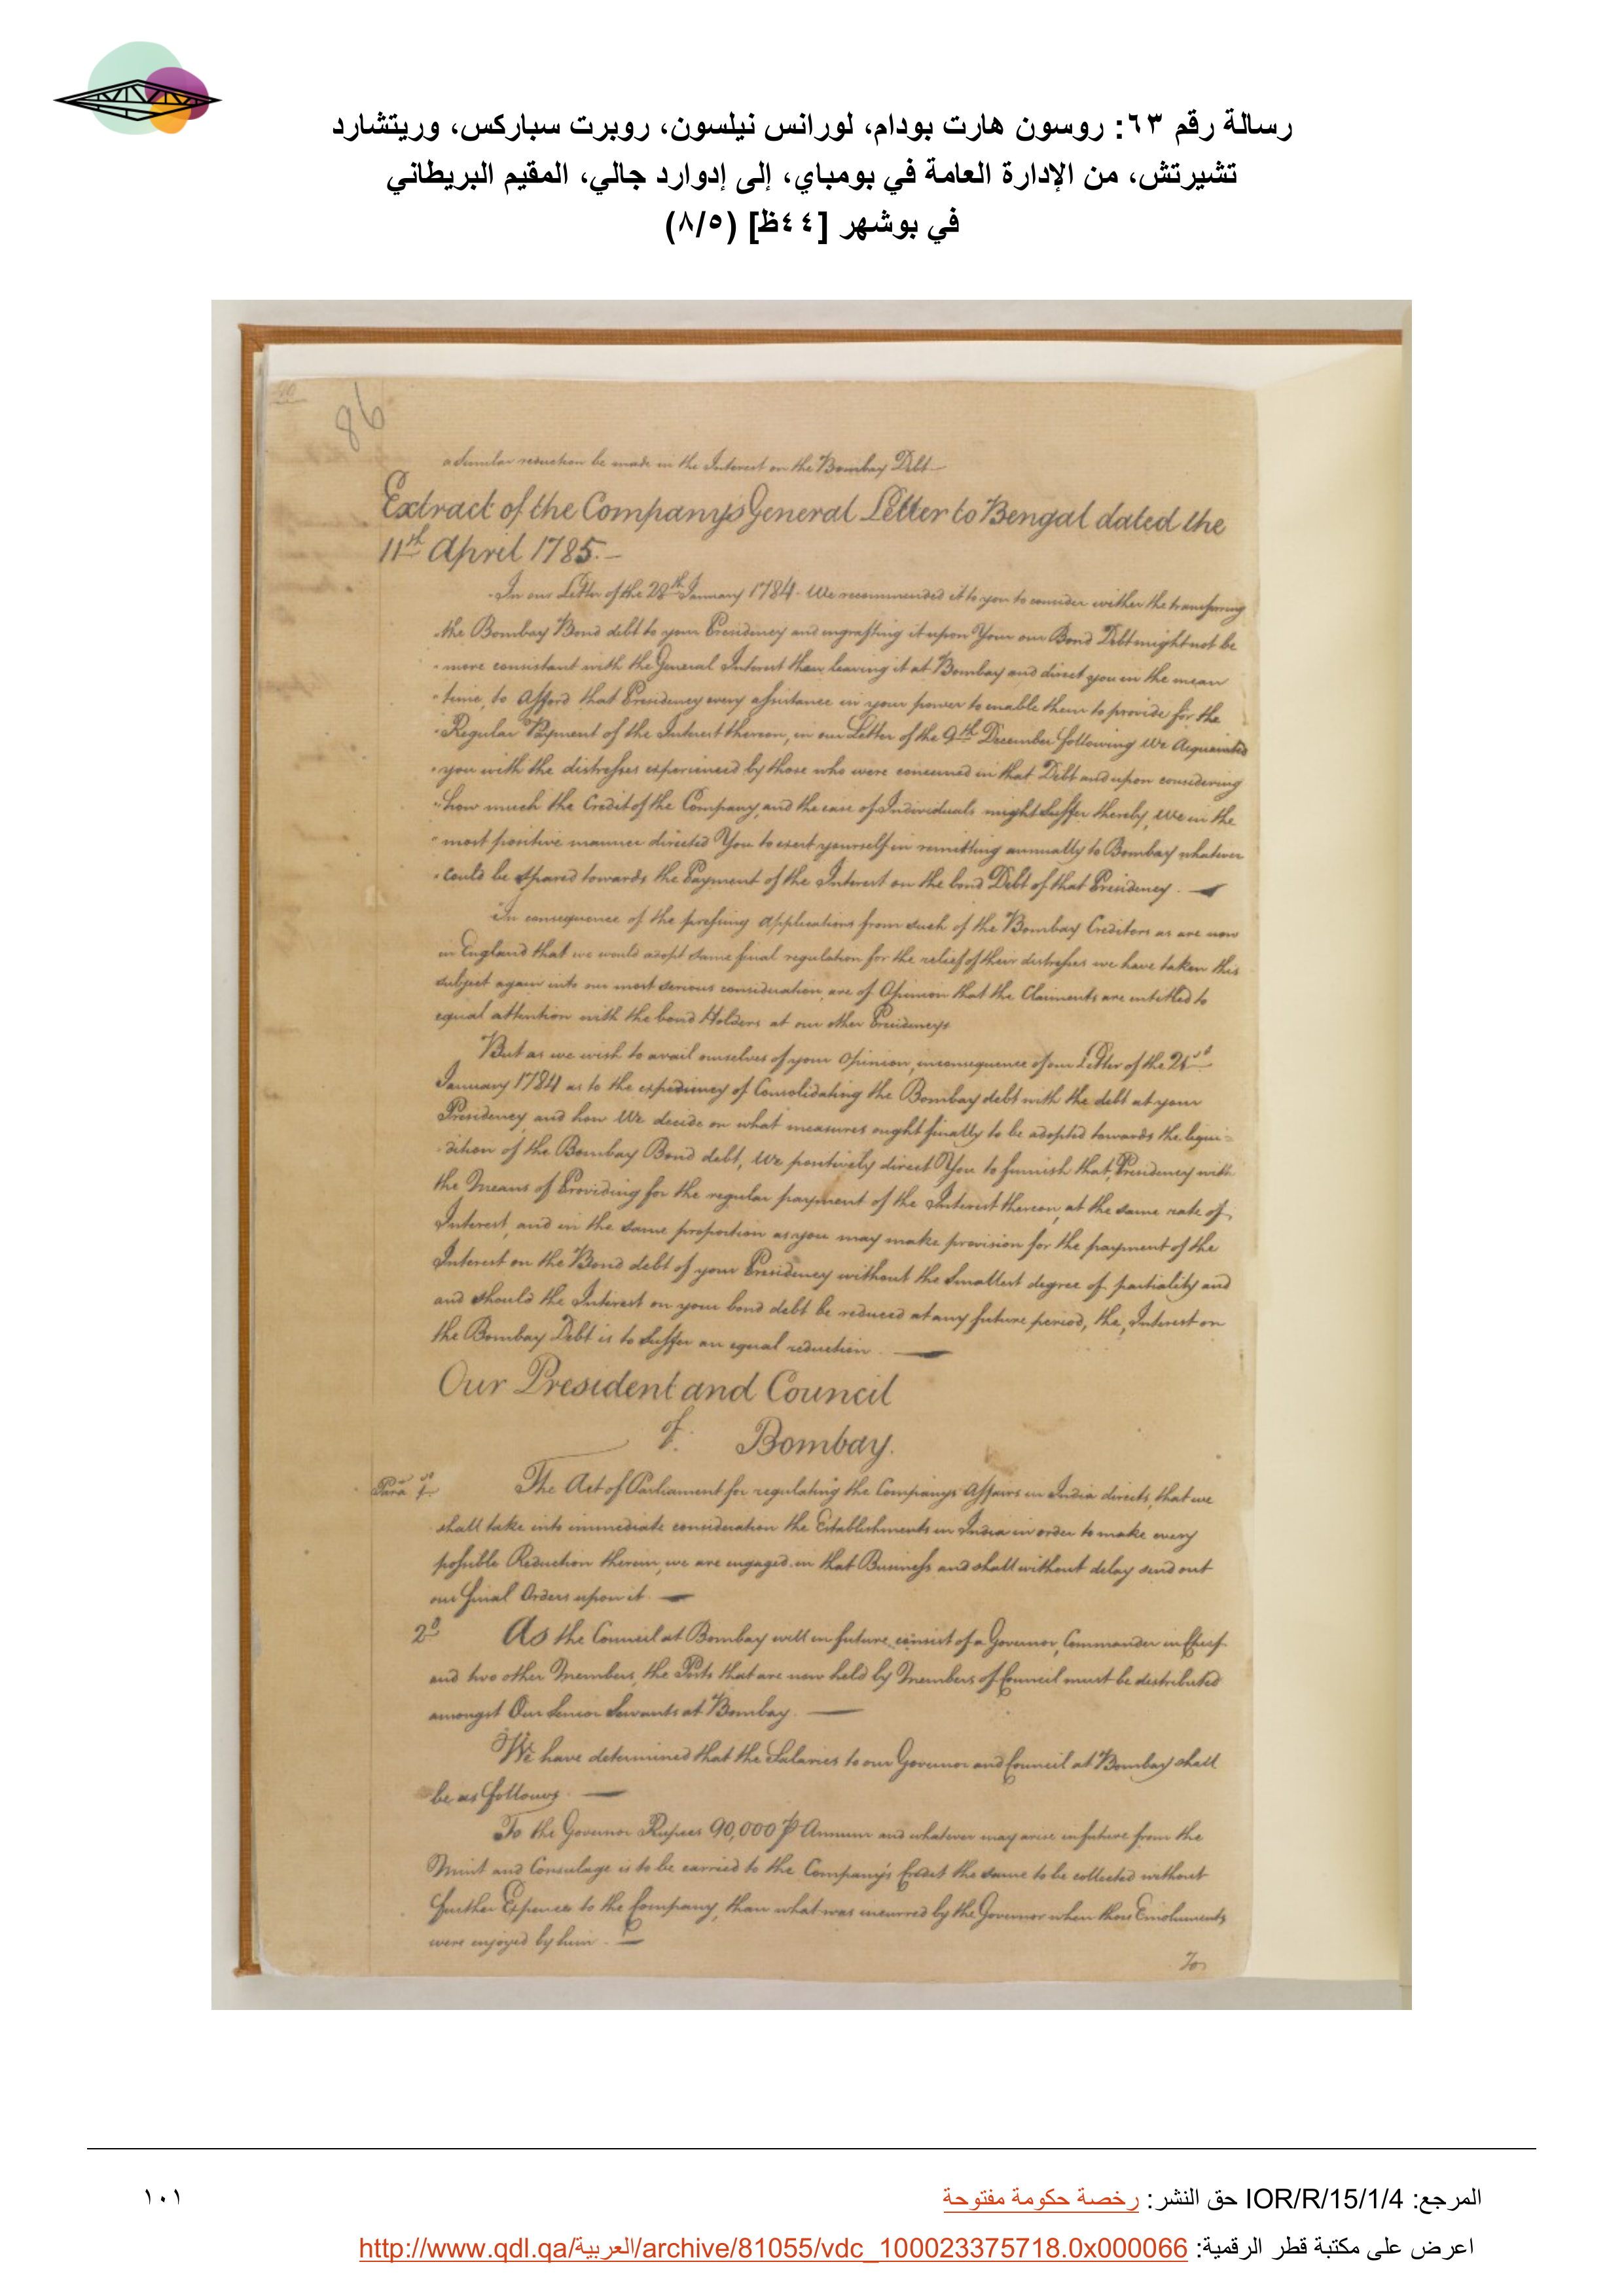 رسالة رقم ٦٣: روسون هارت بودام، لورانس نيلسون، روبرت سباركس، وريتشارد
تشيرتش، من الإدارة العامة في بومباي، إلى إدوارد جالي، المقيم البريطاني
في بوشهر [٤٤ظ] (٨/٥)
86
a similar reduction be made in the Interest on the Bombay Debt
Extract of the Companys General Letter to Bengal dated the
11th April 1785.
In our Letter of the 28th January 1784 We recommended it to you to consider wither the transfering
the Bombay Bond debt to your Presidency and engrafting it upon Your own Bond Debt might not be
more consistant with the General Interest than leaving it at Bombay and direct you in the mean
time, to Afford that Presidency every assistance in your power to enable them to provide for the
Regular Payment of the Interest thereon, in our Letter of the 9th December following We Acquainted
you with the distresses experienced by those who were concerned in that Debt and upon considering
how much the Credit of the Company, and the case of Individuals might Suffer thereby, We in the
most positive manner directed You to exert yourself in remitting annually to Bombay whatever
could be spared towards the Payment of the Interest on the bond Debt of that Presidency.
In consequence of the pressing Applications from such of the Bombay Creditors as are now
in England that we would adopt some final regulation for the relief of their distresses we have taken this
subject again into our most serious consideration, are of Opinion that the Claiments are intitled to
equal attention with the bond Holders at our other Presidencys
But as we wish to avail ourselves of your Opinion, inconsequence of our Letter of the
January 1784 as to the expediency of Consolidating the Bombay debt with the debt at your
Presidency, and how We decide on what measures ought finally to be adopted towards the liqui=
dition of the Bombay Bond debt, We positively direct You to furnish that Presidency with
the Means of Providing for the regular payment of the Interest thereon, at the same rate of
Interest, and in the same proportion as you may make provision for the payment of the
Interest on the Bond debt of your Presidency without the Smallest degree of partiality and
and should the Interest on your bond debt be reduced at any future period, the Interest on
the Bombay Debt is to Suffer an equal reduction.
Our President and Council
of Bombay.
Para 1st The Act of Parliament for regulating the Companys Affairs in India directs, that we
shall take into immediate consideration the Establishments in India in order to make every
possible Reduction therein, we are engaged in that Business and shall without delay send out
our final Orders upon it.
2d As the Council at Bombay will in future consist of a Governor, Commander in Chief
and two other Members, the Posts that are now held by Members of Council must be distributed
amongst Our Senior Servants at Bombay.
We have determined that the Salaries to our Governor and Council at Bombay shall
be as follows.
To the Governor Rupees 90,000 P Annum and whatever may arise in future from the
Mint and Consulage is to be carried to the Company's Credit the same to be collected without
further Expences to the Company, than what was incurred by the Governor when those Emoluments
were enjoyed by him.
To
المرجع: IOR/R/15/1/4 حق النشر: رخصة حكومة مفتوحة
١٠١
اعرض على مكتبة قطر الرقمية: http://www.qdl.qa/العربية/archive/81055/vdc_100023375718.0x000066